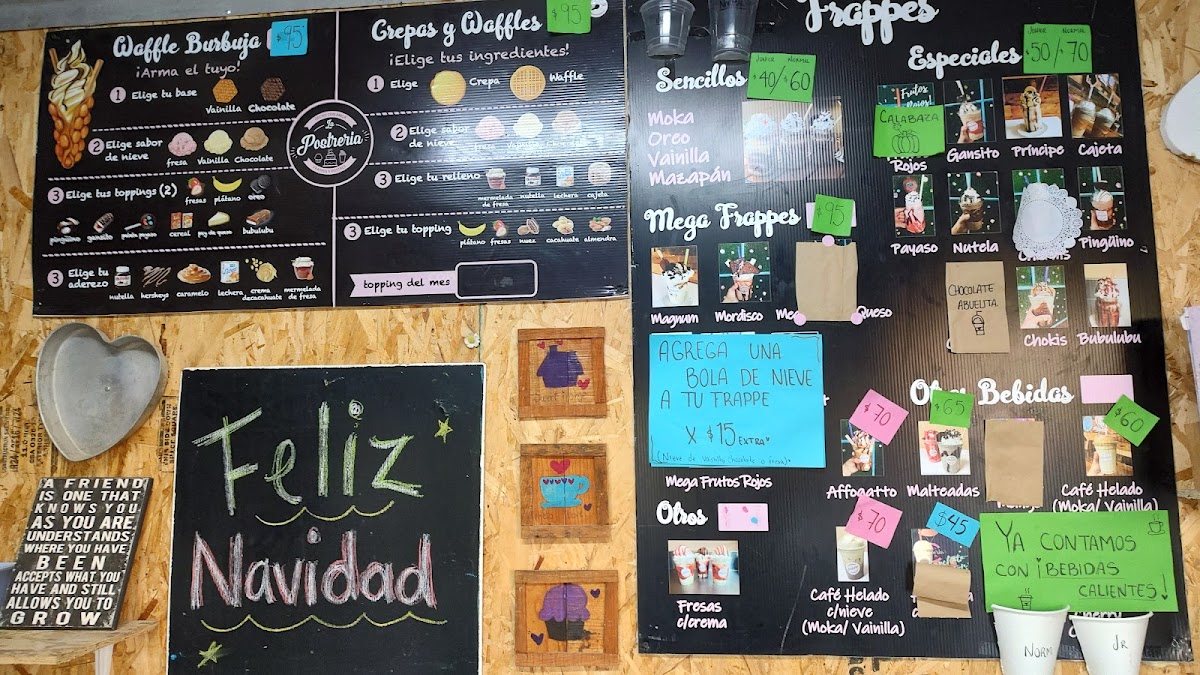 Waffle Burbuja
$95
¡Arma el tuyo!
1 Elige tu base
Vainilla
Chocolate
2 Elige sabor
de nieve
fresa
Vainilla
Chocolate
3 Elige tus toppings (2)
fresas
plátano
oreo
pinguinos
gansito
paleta payaso
cereal
pay de queso
bubulubu
3 Elige tu
aderezo
nutella
hersheys
caramelo
lechera
crema
decacahuate
mermelada
de fresa
La
Postreria
Crepas y Waffles
$95
¡Elige tus ingredientes!
1 Elige
Crepa
Waffle
2 Elige sabor
de nieve
3 Elige tu relleno
mermelada
de fresa
nutella
lechera
cajeta
3 Elige tu topping
plátano
fresas
nuez
cacahuate
almendra
topping del mes
Frappes
Sencillos
JUNIOR NORMAL
$40/$60
Moka
Oreo
Vainilla
Mazapán
Especiales
JUNIOR NORMAL
$50/$70
Frutos
Rojos!
CALABAZA
Rojos
Gansito
Príncipe
Cajeta
Payaso
Nutela
Pingüino
CHOCOLATE
ABUELITA
Chokis
Bubulubu
Mega Frappes
$95
Magnum
Mordisco
Queso
AGREGA UNA
BOLA DE NIEVE
A TU FRAPPE
X $15 EXTRA*
(Nieve de vainilla chocolate o fresa)*
Mega Frutos Rojos
Otros
Fresas
c/crema
Otras Bebidas
$70
$65
$60
Affogatto
Malteadas
Café Helado
(Moka/ Vainilla)
$70
$45
Café Helado
c/nieve
(Moka/ Vainilla)
YA CONTAMOS
CON ¡BEBIDAS
CALIENTES!
NORM
JR
Feliz
Navidad
A FRIEND
IS ONE THAT
KNOWS YOU
AS YOU ARE,
UNDERSTANDS
WHERE YOU HAVE
BEEN
ACCEPTS WHAT YOU
HAVE AND STILL
ALLOWS YOU TO
GROW